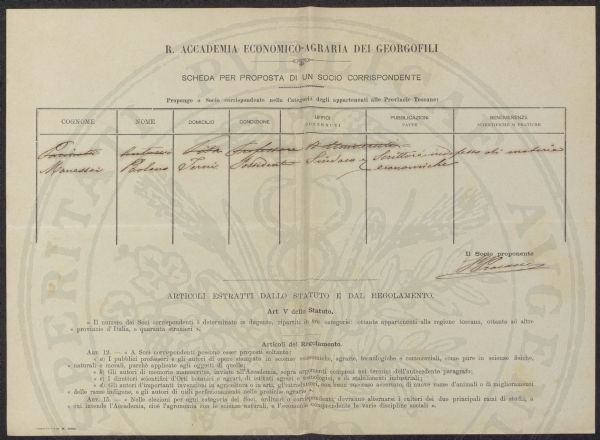 R. ACCADEMIA ECONOMICO-AGRARIA DEI GEORGOFILI
SCHEDA PER PROPOSTA DI UN SOCIO CORRISPONDENTE
Propongo a Socio corrispondente nella Categoria degli appartenenti alle Provincie Toscane:
COGNOME NOME DOMICILIO CONDIZIONE UFFICI PUBBLICAZIONI BENEMERENZE
SOSTENUTI FATTE SCIENTIFICHE O PRATICHE
Antonio Professore
Terni Possidente Sindaco Scrittore indefesso di materie
economiche
Il Socio proponente
ARTICOLI ESTRATTI DALLO STATUTO E DAL REGOLAMENTO.
Art V dello Statuto.
« Il numero dei Soci corrispondenti è determinato in dugento, ripartiti in tre categorie: ottanta appartenenti alla regione toscana, ottanta ad altre
« provincie d'Italia, e quaranta stranieri ».
Articoli del Regolamento.
ART. 12. — « A Soci corrispondenti possono esser proposti soltanto:
« a) I pubblici professori e gli autori di opere stampate in scienze economiche, agrarie, tecnologiche e commerciali, come pure in scienze fisiche,
« naturali e morali, purchè applicate agli oggetti di quelle;
« b) Gli autori di memorie manoscritte, inviate all'Accademia, sopra argomenti compresi nei termini dell'antecedente paragrafo;
« c) I direttori scientifici d'Orti botanici e agrari, di istituti agrari e tecnologici, e di stabilimenti industriali;
« d) Gli autori d'importanti invenzioni in agricoltura o in arti, gl'introduttori, con buon successo accertato, di nuove razze d'animali o di miglioramenti
« delle razze indigene, e gli autori di utili perfezionamenti delle pratiche agrarie.
ART. 15. — « Nelle elezioni per ogni categoria dei Soci, ordinari e corrispondenti, dovranno alternarsi i cultori dei due principali rami di studii, a
« cui intende l'Accademia, cioè l'agronomia con le scienze naturali, e l'economia comprendente le varie discipline sociali ».